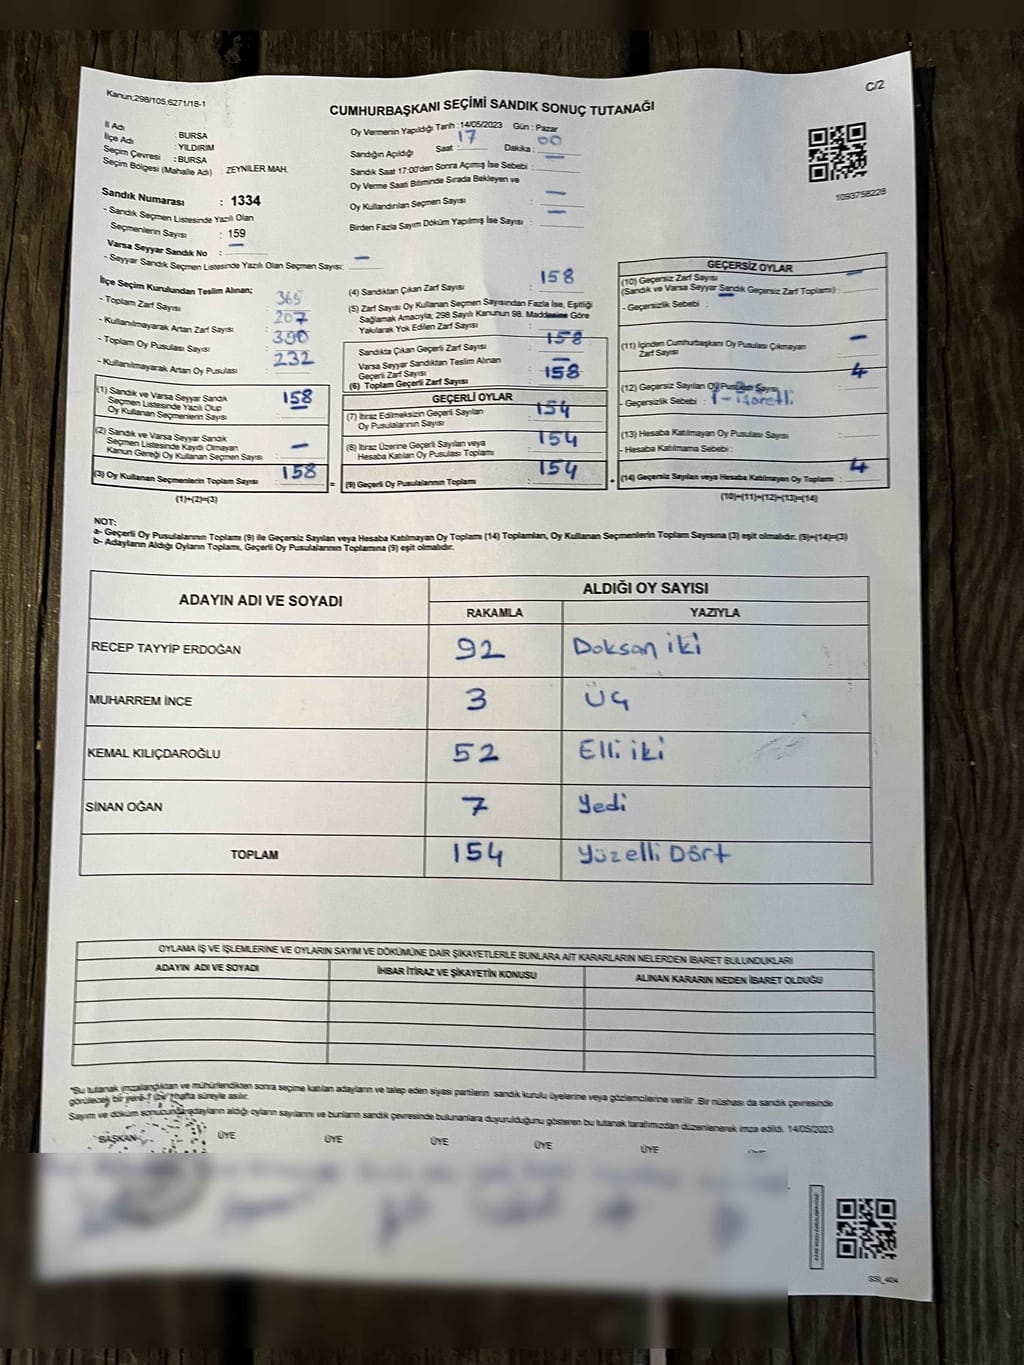 Kanun;298/105;6271/18-1
C/2
CUMHURBAŞKANI SEÇİMİ SANDIK SONUÇ TUTANAĞI
İl Adı : BURSA
İlçe Adı : YILDIRIM
Seçim Çevresi : BURSA
Seçim Bölgesi (Mahalle Adı) : ZEYNİLER MAH.
Sandık Numarası : 1334
- Sandık Seçmen Listesinde Yazılı Olan
Seçmenlerin Sayısı : 159
Varsa Seyyar Sandık No : —
- Seyyar Sandık Seçmen Listesinde Yazılı Olan Seçmen Sayısı: —
Oy Vermenin Yapıldığı Tarih :14/05/2023 Gün : Pazar
Sandığın Açıldığı Saat : 17 Dakika : 00
Sandık Saat 17:00'den Sonra Açımış İse Sebebi : —
Oy Verme Saati Bitiminde Sırada Bekleyen ve
Oy Kullandırılan Seçmen Sayısı : —
Birden Fazla Sayım Döküm Yapılmış İse Sayısı : —
1093758228
İlçe Seçim Kurulundan Teslim Alınan;
- Toplam Zarf Sayısı : 365
- Kullanılmayarak Artan Zarf Sayısı : 207
- Toplam Oy Pusulası Sayısı : 390
- Kullanılmayarak Artan Oy Pusulası : 232
(1) Sandık ve Varsa Seyyar Sandık
Seçmen Listesinde Yazılı Olup
Oy Kullanan Seçmenlerin Sayısı : 158
(2) Sandık ve Varsa Seyyar Sandık
Seçmen Listesinde Kayıtlı Olmayan
Kanun Gereği Oy Kullanan Seçmen Sayısı : —
(3) Oy Kullanan Seçmenlerin Toplam Sayısı : 158
(1)+(2)=(3)
(4) Sandıktan Çıkan Zarf Sayısı : 158
(5) Zarf Sayısı Oy Kullanan Seçmen Sayısından Fazla İse, Eşitliği
Sağlamak Amacıyla; 298 Sayılı Kanunun 98. Maddesine Göre
Yakılarak Yok Edilen Zarf Sayısı : —
Sandıkta Çıkan Geçerli Zarf Sayısı : 158
Varsa Seyyar Sandıktan Teslim Alınan
Geçerli Zarf Sayısı : —
(6) Toplam Geçerli Zarf Sayısı : 158
GEÇERLİ OYLAR
(7) İtiraz Edilmeksizin Geçerli Sayılan
Oy Pusulalarının Sayısı : 154
(8) İtiraz Üzerine Geçerli Sayılan veya
Hesaba Katılan Oy Pusulası Toplamı : 154
= (9) Geçerli Oy Pusulalarının Toplamı : 154
GEÇERSİZ OYLAR
(10) Geçersiz Zarf Sayısı
(Sandık ve Varsa Seyyar Sandık Geçersiz Zarf Toplamı) : —
- Geçersizlik Sebebi : —
(11) İçinden Cumhurbaşkanı Oy Pusulası Çıkmayan
Zarf Sayısı : —
(12) Geçersiz Sayılan Oy Pusulası Sayısı : 4
- Geçersizlik Sebebi :
(13) Hesaba Katılmayan Oy Pusulası Sayısı :
- Hesaba Katılmama Sebebi :
+ (14) Geçersiz Sayılan veya Hesaba Katılmayan Oy Toplamı : 4
(10)+(11)+(12)+(13)=(14)
NOT:
a- Geçerli Oy Pusulalarının Toplamı (9) ile Geçersiz Sayılan veya Hesaba Katılmayan Oy Toplamı (14) Toplamları, Oy Kullanan Seçmenlerin Toplam Sayısına (3) eşit olmalıdır. (9)+(14)=(3)
b- Adayların Aldığı Oyların Toplamı, Geçerli Oy Pusulalarının Toplamına (9) eşit olmalıdır.
ADAYIN ADI VE SOYADI
ALDIĞI OY SAYISI
RAKAMLA YAZIYLA
RECEP TAYYİP ERDOĞAN 92 Doksan iki
MUHARREM İNCE 3 Üç
KEMAL KILIÇDAROĞLU 52 Elli iki
SİNAN OĞAN 7 Yedi
TOPLAM 154 Yüzelli Dört
OYLAMA İŞ VE İŞLEMLERİNE VE OYLARIN SAYIM VE DÖKÜMÜNE DAİR ŞİKAYETLERLE BUNLARA AİT KARARLARIN NELERDEN İBARET BULUNDUKLARI
ADAYIN ADI VE SOYADI İHBAR İTİRAZ VE ŞİKAYETİN KONUSU ALINAN KARARIN NEDEN İBARET OLDUĞU
"Bu tutanak imzalandıktan ve mühürlendikten sonra seçime katılan adayların ve talep eden siyasi partilerin sandık kurulu üyelerine veya gözlemcilerine verilir .Bir nüshası da sandık çevresinde
görülecek bir yere bir hafta süreyle asılır.
Sayım ve döküm sonucunda adayların aldığı oyların sayılarını ve bunların sandık çevresinde bulunanlara duyurulduğunu gösteren bu tutanak tarafımızdan düzenlenerek imza edildi. 14/05/2023
BAŞKAN ÜYE ÜYE ÜYE ÜYE ÜYE
SSI_404